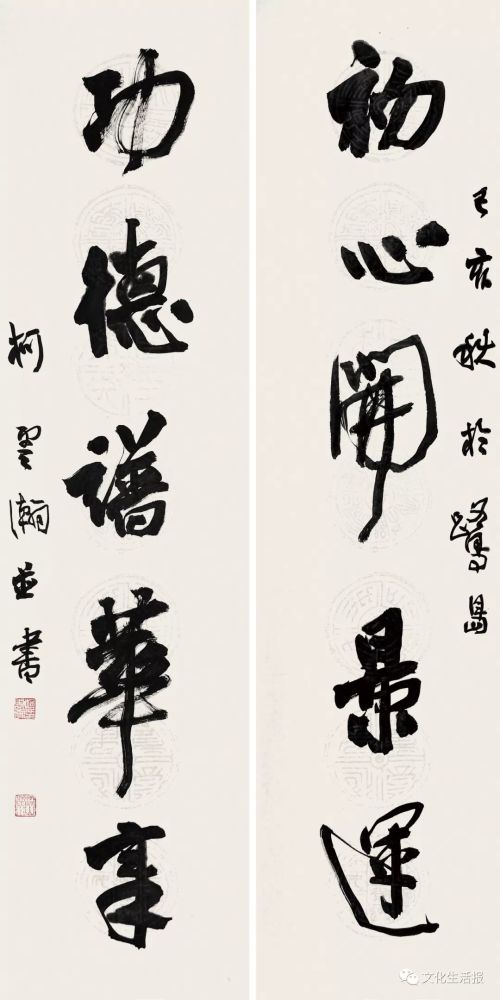 己亥秋於鷺島
初心開景運
功德譜華章
柯雲瀚並書
文化生活报